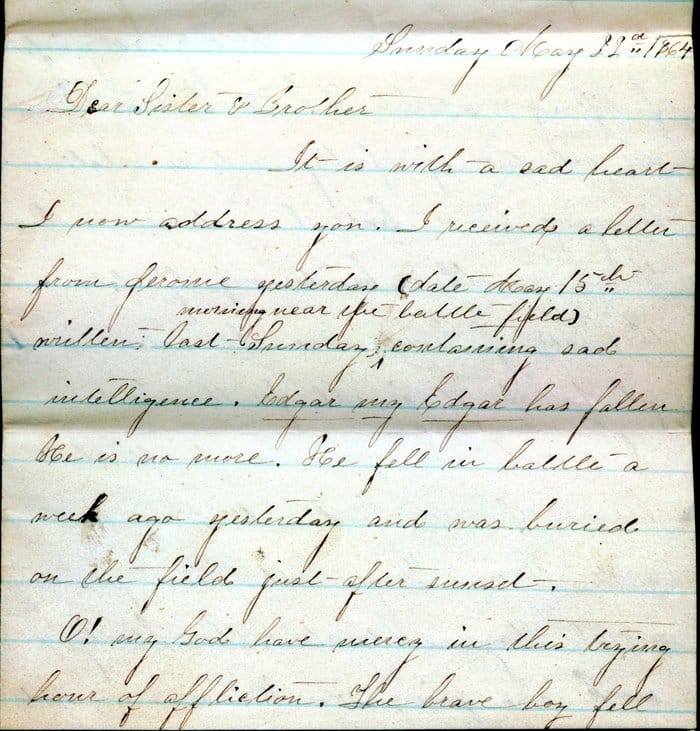 Sunday May 22d 1864
Dear Sister & Brother
It is with a sad heart
I now address you. I received a letter
from Jerome yesterday (date May 15th
morning near the battle field)
written last Sunday, containing sad
intelligence. Edgar my Edgar has fallen
He is no more. He fell in battle a
week ago yesterday and was buried
on the field just after sunset.
O! my God have mercy in this trying
hour of affliction. The brave boy fell